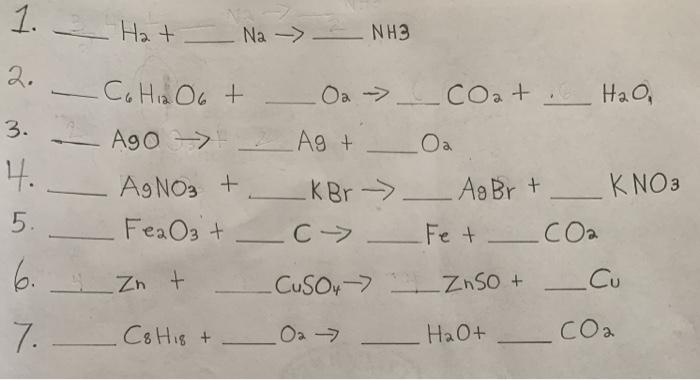 1. ___ H₂ + ___ N₂ → ___ NH3
2. ___ C₆H₁₂O₆ + ___ O₂ → ___ CO₂ + ___ H₂O
3. ___ AgO → ___ Ag + ___ O₂
4. ___ AgNO₃ + ___ KBr → ___ AgBr + ___ KNO₃
5. ___ Fe₂O₃ + ___ C → ___ Fe + ___ CO₂
6. ___ Zn + ___ CuSO₄ → ___ ZnSO + ___ Cu
7. ___ C₈H₁₈ + ___ O₂ → ___ H₂O + ___ CO₂